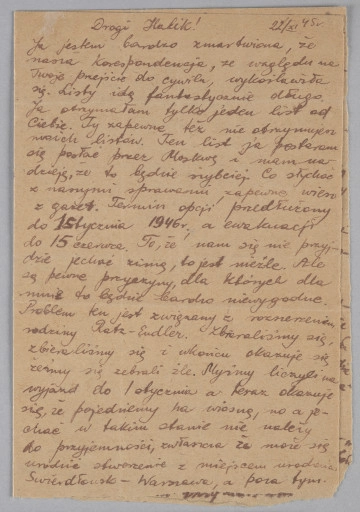 Drogi Kubik! 22/XI 45r.
Ja jestem bardzo zmartwiona, że
nasza korespondencja, ze względu na
Twoje przejście do cywila, wykoślawiła
się. Listy idą fantastycznie długo.
Ja otrzymałam tylko jeden list od
Ciebie. Ty zapewne też nie otrzymujesz
moich listów. Ten list ja postaram
się posłać przez Moskwę i mam na-
dzieję, że to będzie szybciej. Co słychać
z naszymi sprawami zapewne wiesz
z gazet. Termin opcji przedłużony
do 1 stycznia 1946r, a ewakuacji
do 15 czerwca. To, że nam się nie przyj-
dzie jechać zimą, to jest nieźle. Ale
są pewne przyczyny, dla których dla
mnie to będzie bardzo niewygodne.
Problem ten jest związany z rozszerzeniem
rodziny Ratz-Endler. Zbieraliśmy się,
zbieraliśmy się i wkońcu okazuje się
żeśmy się zebrali źle. Myśmy liczyli na
wyjazd do 1 stycznia a teraz okazuje
się, że pojedziemy na wiosnę, no a je-
chać w takim stanie nie należy
do przyjemności, zwłaszcza że może się
urodzić stworzenie z miejscem urodzenia
Swierdłowsk - Warszawa, a poza tym